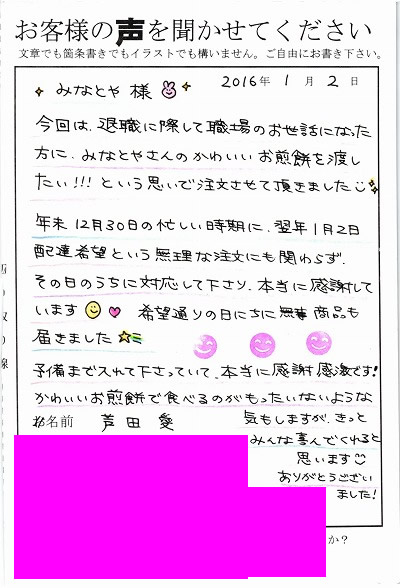 お客様の声を聞かせてください
文章でも箇条書きでもイラストでも構いません。ご自由にお書き下さい。
みなとや 様
2016年 1月 2日
今回は、退職に際して職場のお世話になった
方に、みなとやさんのかわいい お煎餅を渡し
たい!!! という思いで注文させて頂きました
年末12月30日の忙しい時期に、翌年1月2日
配達希望という無理な注文にも関わらず、
その日のうちに対応して下さり、本当に感謝して
います 希望通りの日にちに無事商品も
届きました
予備まで入れて下さっていて、本当に感謝感激です!
かわいいお煎餅で食べるのがもったいないような
お名前 芦田 愛
気もしますが、きっと
みんな喜んでくれると
思います
ありがとうござい
ました!
か?